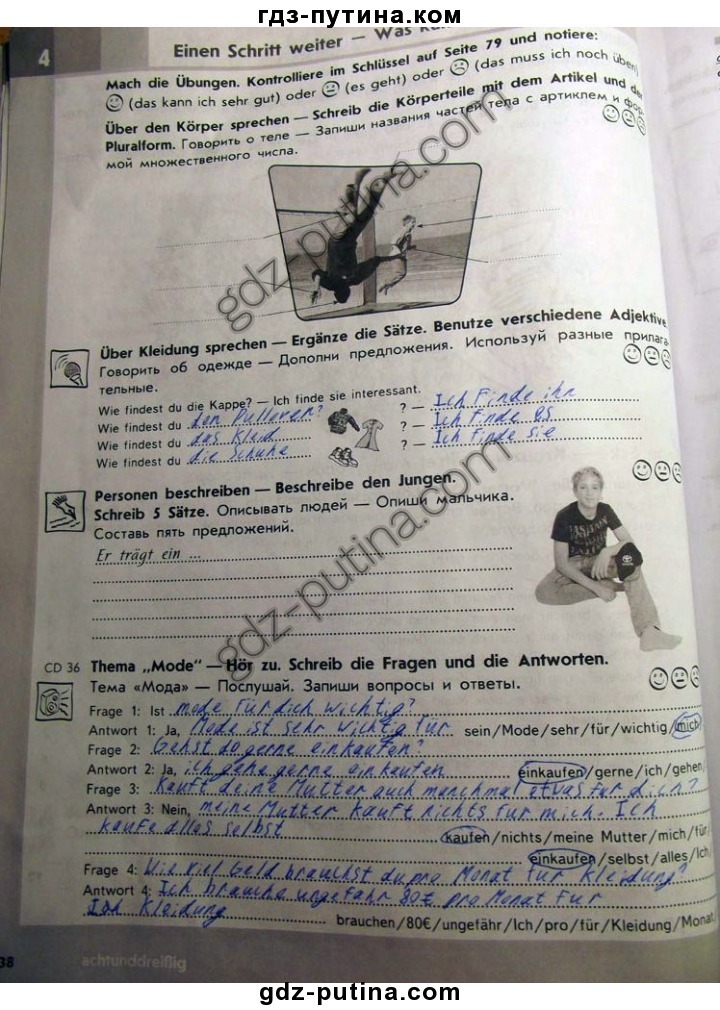 гдз-путина.ком
4
Einen Schritt weiter — Was
Mach die Übungen. Kontrolliere im Schlüssel auf Seite 79 und notiere:
(das kann ich sehr gut) oder (es geht) oder (das muss ich noch üben)
Über den Körper sprechen — Schreib die Körperteile mit dem Artikel und der
Pluralform. Говорить о теле — Запиши названия частей тела с артиклем и фор-
мой множественного числа.
gdz-putina.com
Über Kleidung sprechen — Ergänze die Sätze. Benutze verschiedene Adjektive.
Говорить об одежде — Дополни предложения. Используй разные прилага-
тельные.
Wie findest du die Kappe? — Ich finde sie interessant.
Wie findest du den Pullover? ? — Ich Finde ihn
Wie findest du das Kleid ? — Ich finde es
Wie findest du die Schuhe ? — Ich finde sie
Personen beschreiben — Beschreibe den Jungen.
Schreib 5 Sätze. Описывать людей — Опиши мальчика.
Составь пять предложений.
Er trägt ein ...
gdz-putina.com
CD 36 Thema „Mode" — Hör zu. Schreib die Fragen und die Antworten.
Тема «Мода» — Послушай. Запиши вопросы и ответы.
Frage 1: Ist mode für dich wichtig?
Antwort 1: Ja, Mode ist sehr wichtig für sein/Mode/sehr/für/wichtig/mich
Frage 2: Gehst do gerne einkaufen?
Antwort 2: Ja, ich gehe gerne einkaufen einkaufen/gerne/ich/gehen/
Frage 3: Kauft deine Mutter auch manchmal etwas für dich?
Antwort 3: Nein, meine Mutter kauft nichts für mich. Ich
kaufe alles selbst kaufen/nichts/meine Mutter/mich/für/
einkaufen/selbst/alles/Ich/
Frage 4: Wie viel Geld brauchst du pro Monat für Kleidung?
Antwort 4: Ich brauche ungefähr 80€ pro Monat für
Kleidung brauchen/80€/ungefähr/Ich/pro/für/Kleidung/Monat
38 achtunddreißig
gdz-putina.com